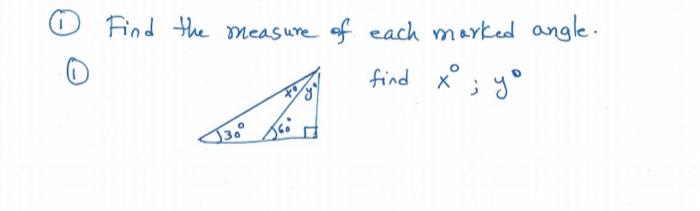 ① Find the measure of each marked angle.
① find x° ; y°
x° y°
30° 60°